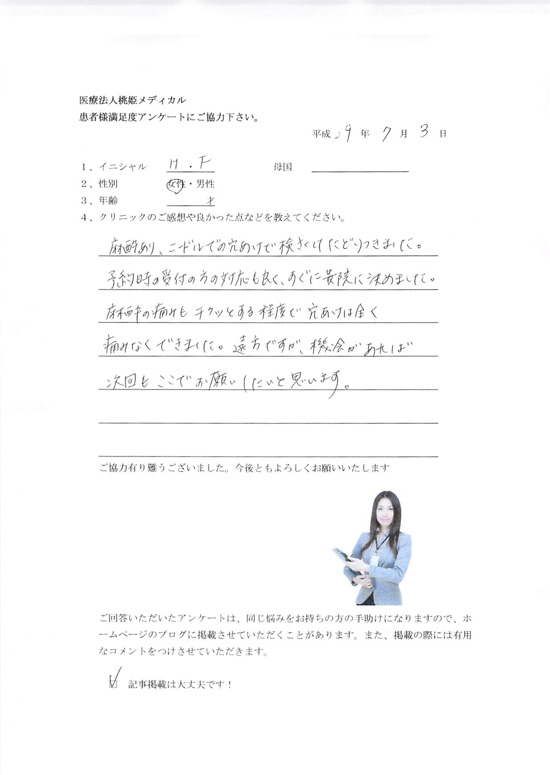 医療法人桃姫メディカル
患者様満足度アンケートにご協力下さい。
平成 29 年 7 月 3 日
1、イニシャル H.F 母国
2、性別 女性・男性
3、年齢 才
4、クリニックのご感想や良かった点などを教えてください。
麻酔あり、ニードルでの穴あけで検さくしたどりつきました。
予約時の受付の方の対応も良く、すぐに貴院に決めました。
麻酔の痛みもチクッとする程度で穴あけは全く
痛みなくできました。遠方ですが、機会があれば
次回もここでお願いしたいと思います。
ご協力有り難うございました。今後ともよろしくお願いいたします
ご回答いただいたアンケートは、同じ悩みをお持ちの方の手助けになりますので、ホ
ームページのブログに掲載させていただくことがあります。また、掲載の際には有用
なコメントをつけさせていただきます。
☑ 記事掲載は大丈夫です!